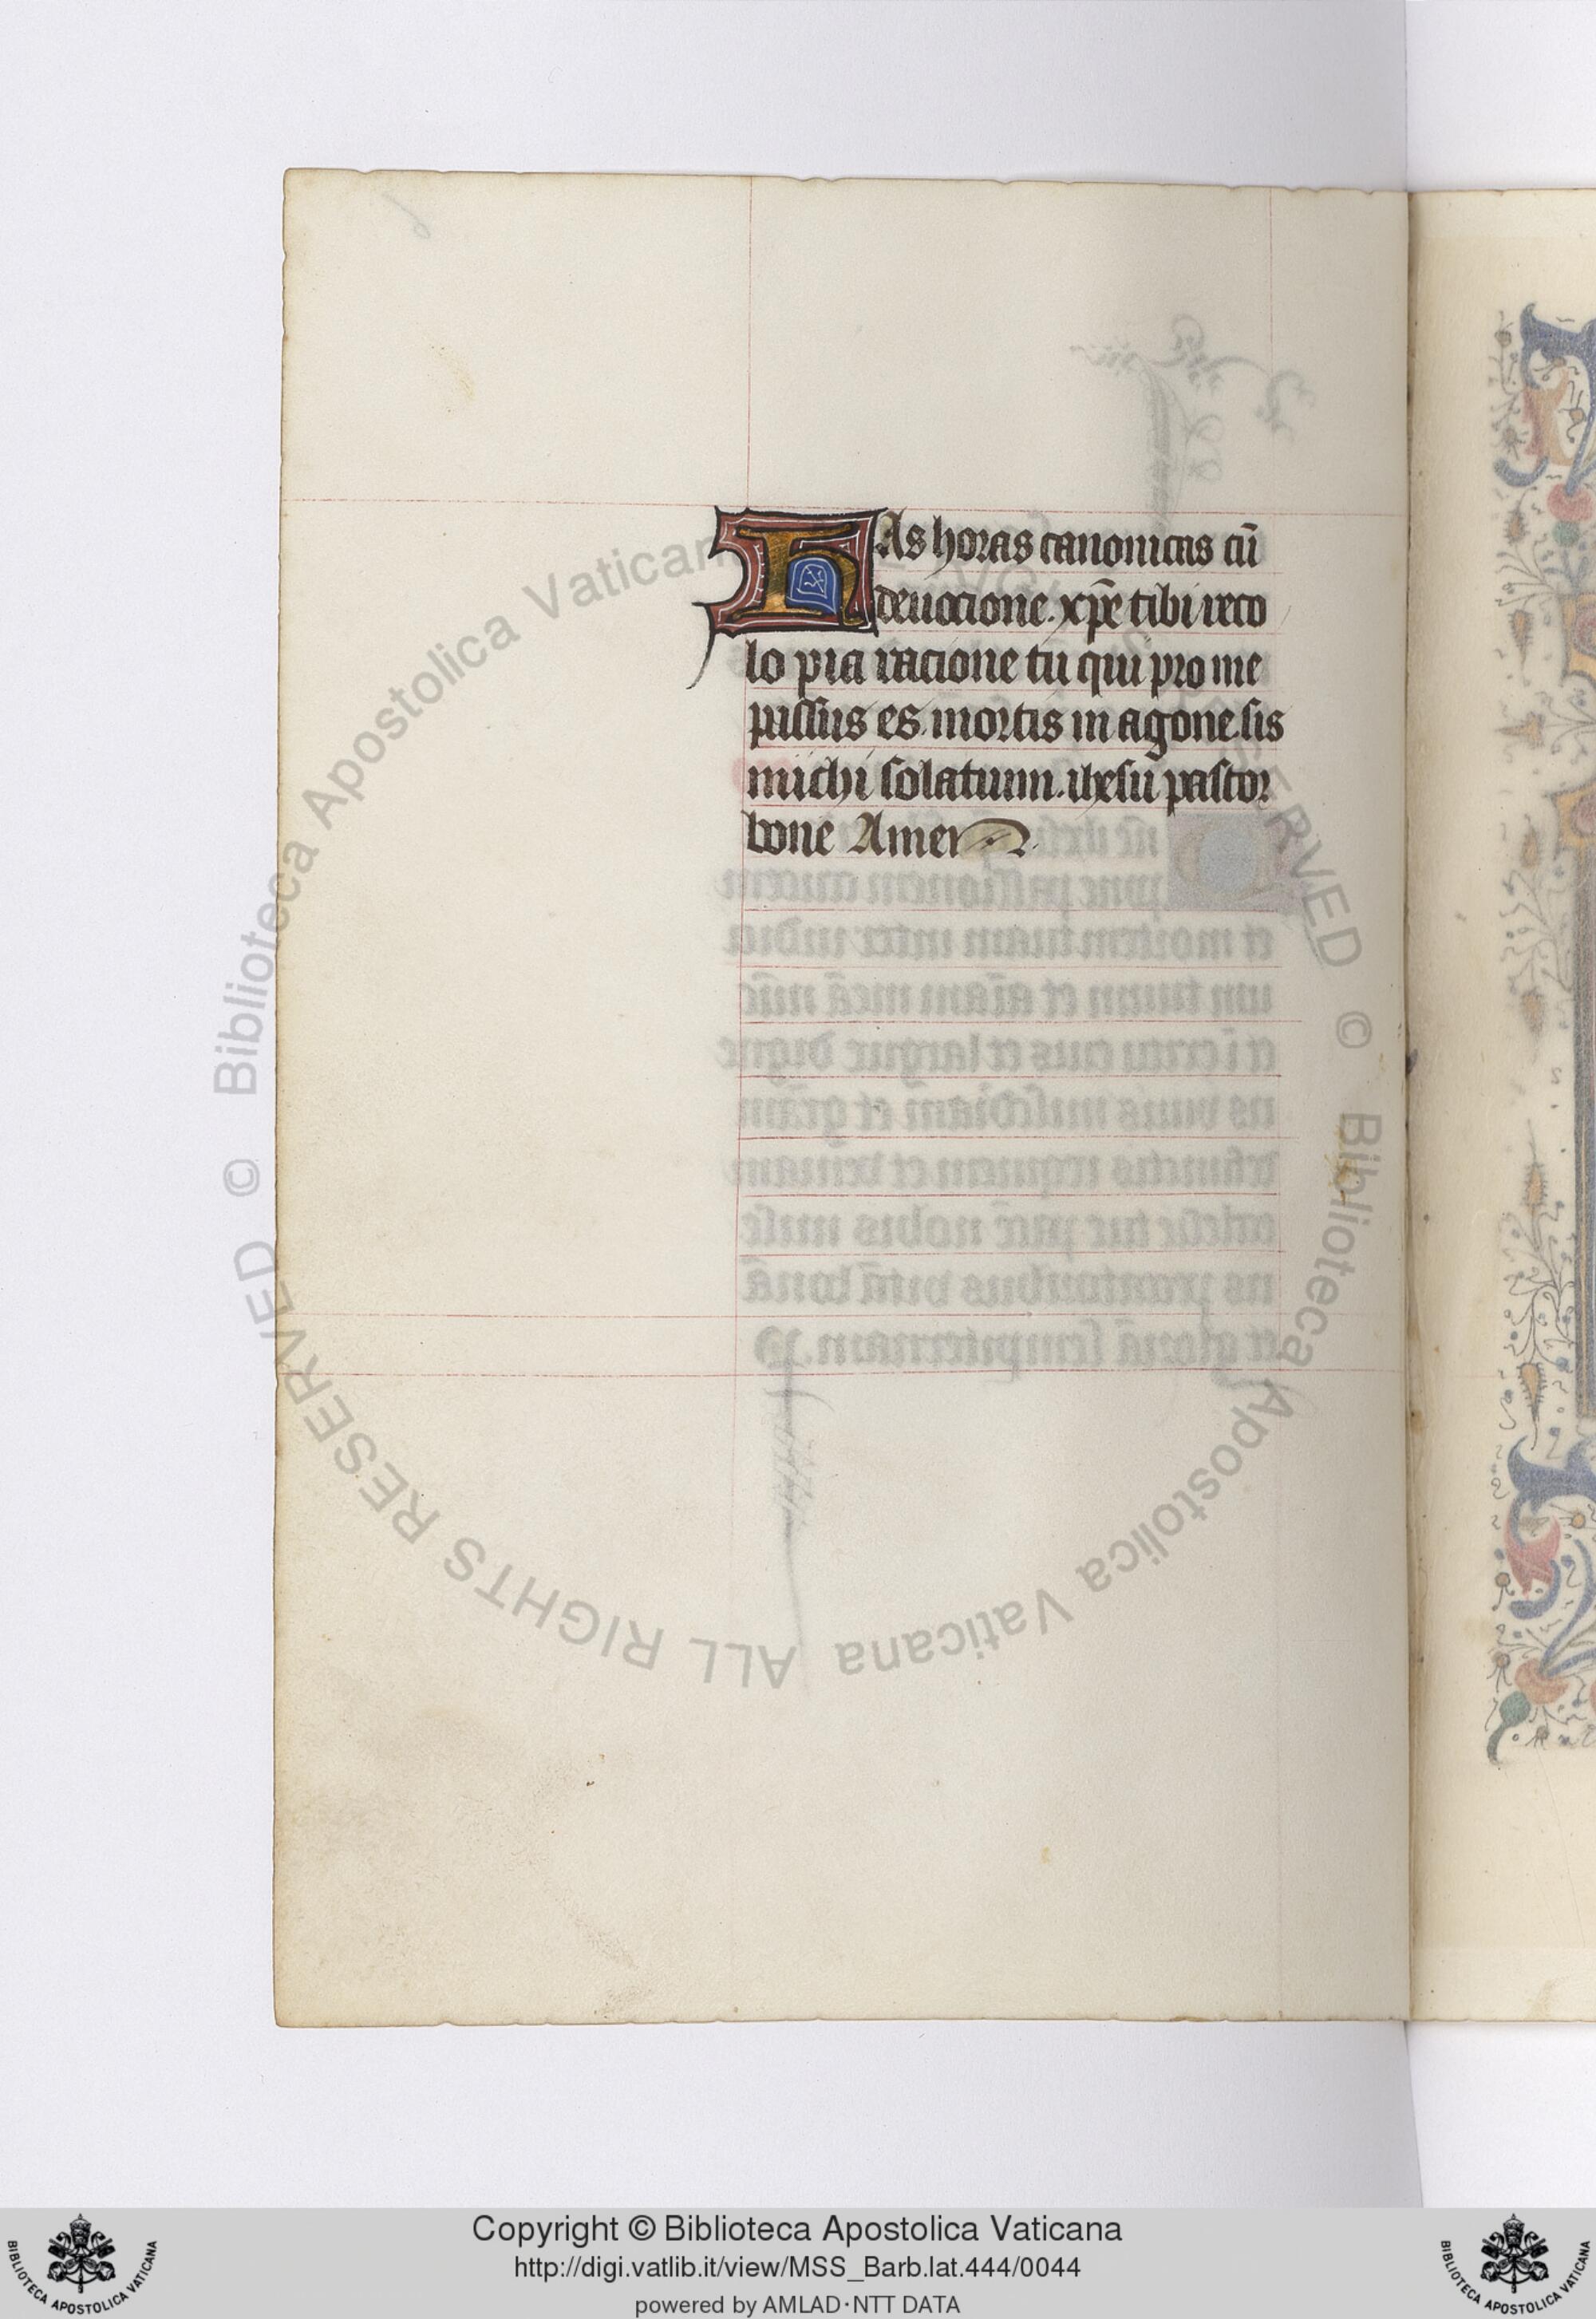 HAs horas canonicas cū
deuocione. xp̄e tibi reco
lo pia racione tu qui pro me
passus es. mortis in agone. sis
michi solatium. ihesu pastor
bone Amen
© Biblioteca Apostolica Vaticana
ALL RIGHTS RESERVED
© Biblioteca Apostolica Vaticana
Copyright © Biblioteca Apostolica Vaticana
http://digi.vatlib.it/view/MSS_Barb.lat.444/0044
powered by AMLAD·NTT DATA
BIBLIOTECA APOSTOLICA VATICANA
BIBLIOTECA APOSTOLICA VATICANA